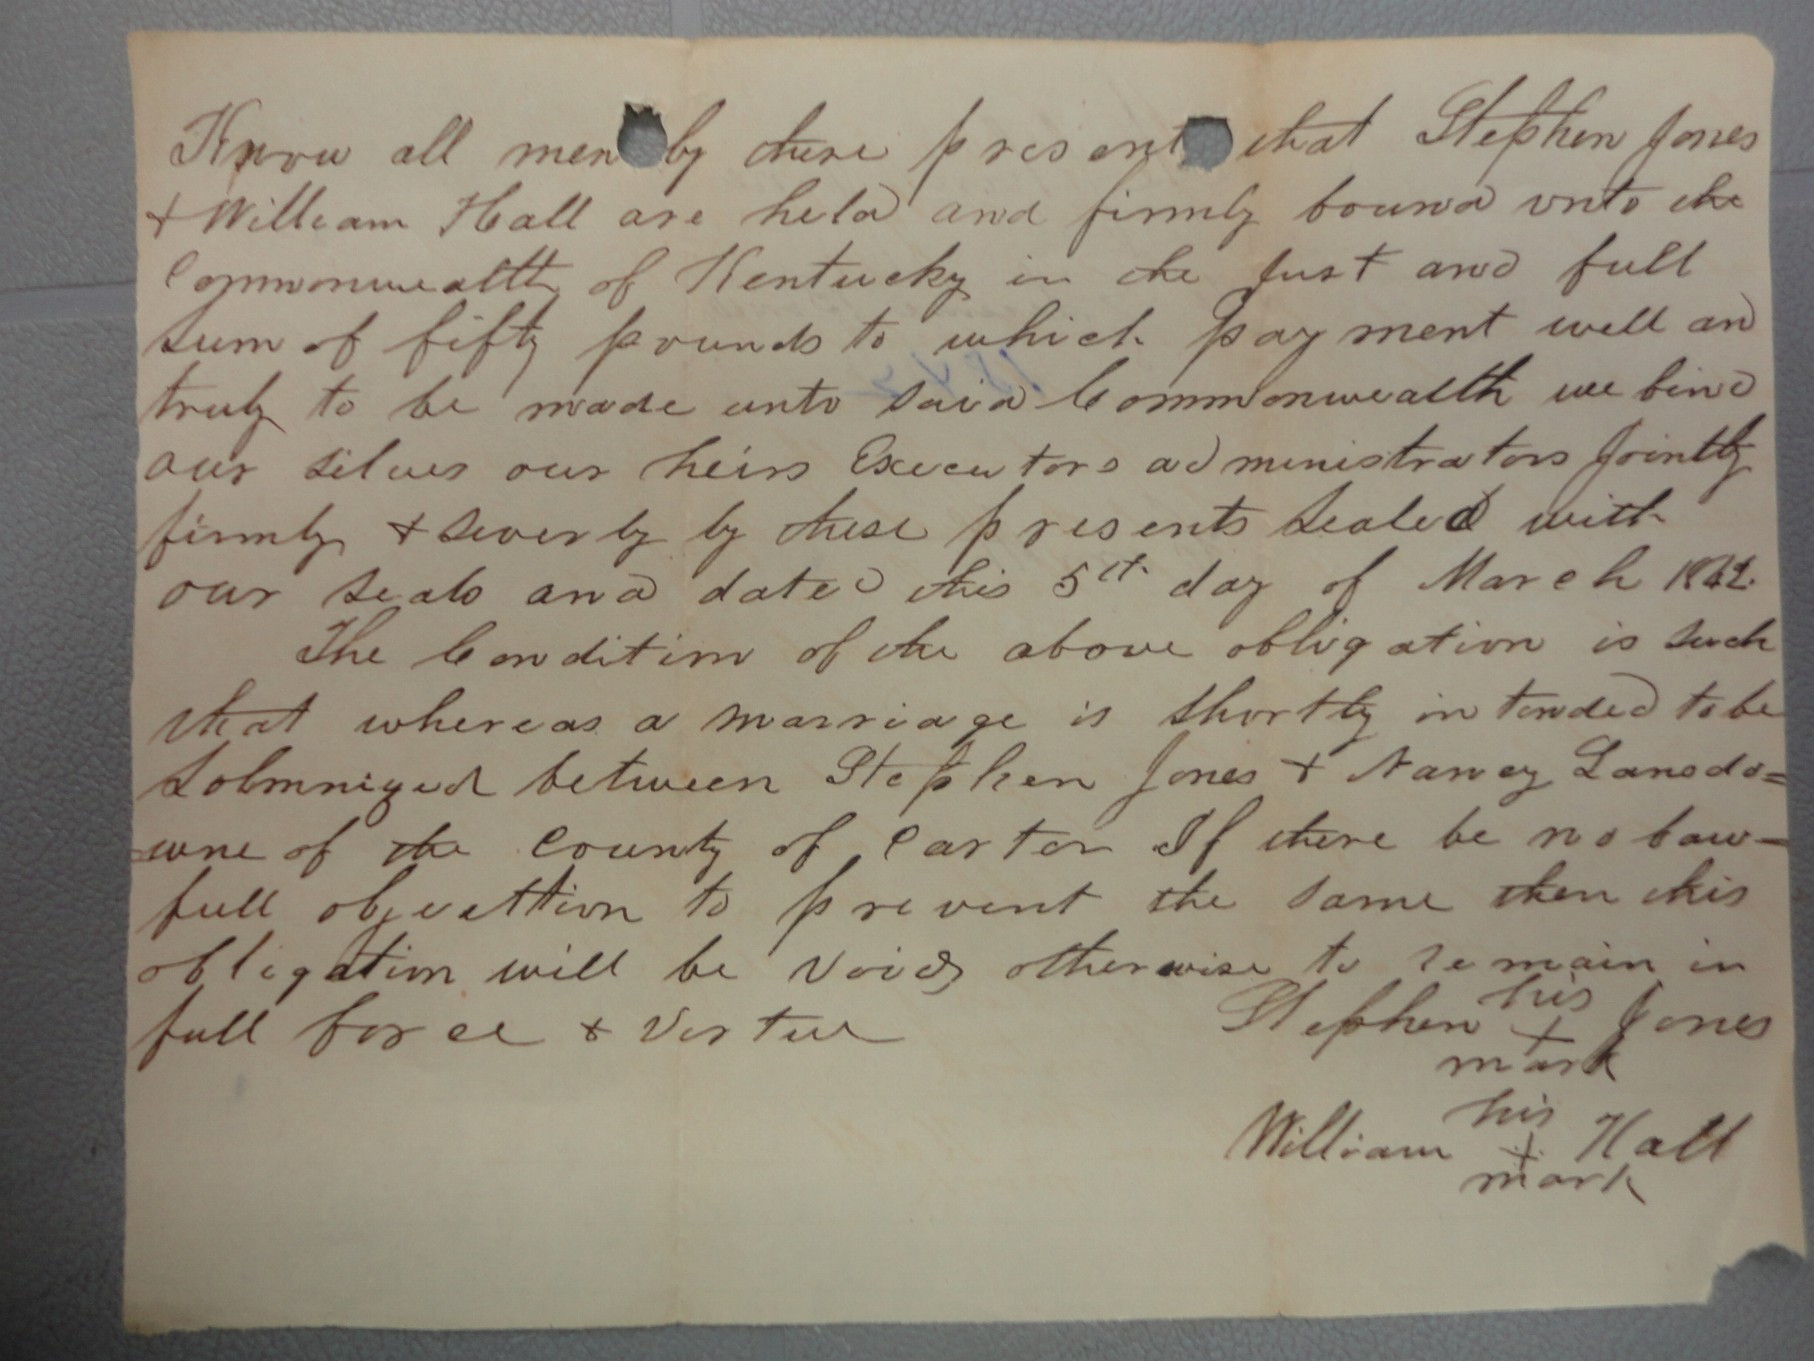 Know all men by these present that Stephen Jones
+ William Hall are held and firmly bound unto the
Commonwealth of Kentucky in the Just and full
sum of fifty pounds to which payment well and
truly to be made unto said Commonwealth we bind
our selves our heirs Executors administrators Jointly
firmly + severly by these presents sealed with
our seals and dated this 5th day of March
The Condition of the above obligation is such
that whereas a marriage is shortly intended to be
Solmnized between Stephen Jones + Nancy Lansdo=
=wne of the County of Carter If there be no law=
full objecttion to prevent the same then this
obligation will be void, otherwise to remain in
full force + Virtue
Stephen his + mark Jones
William his + mark Hall